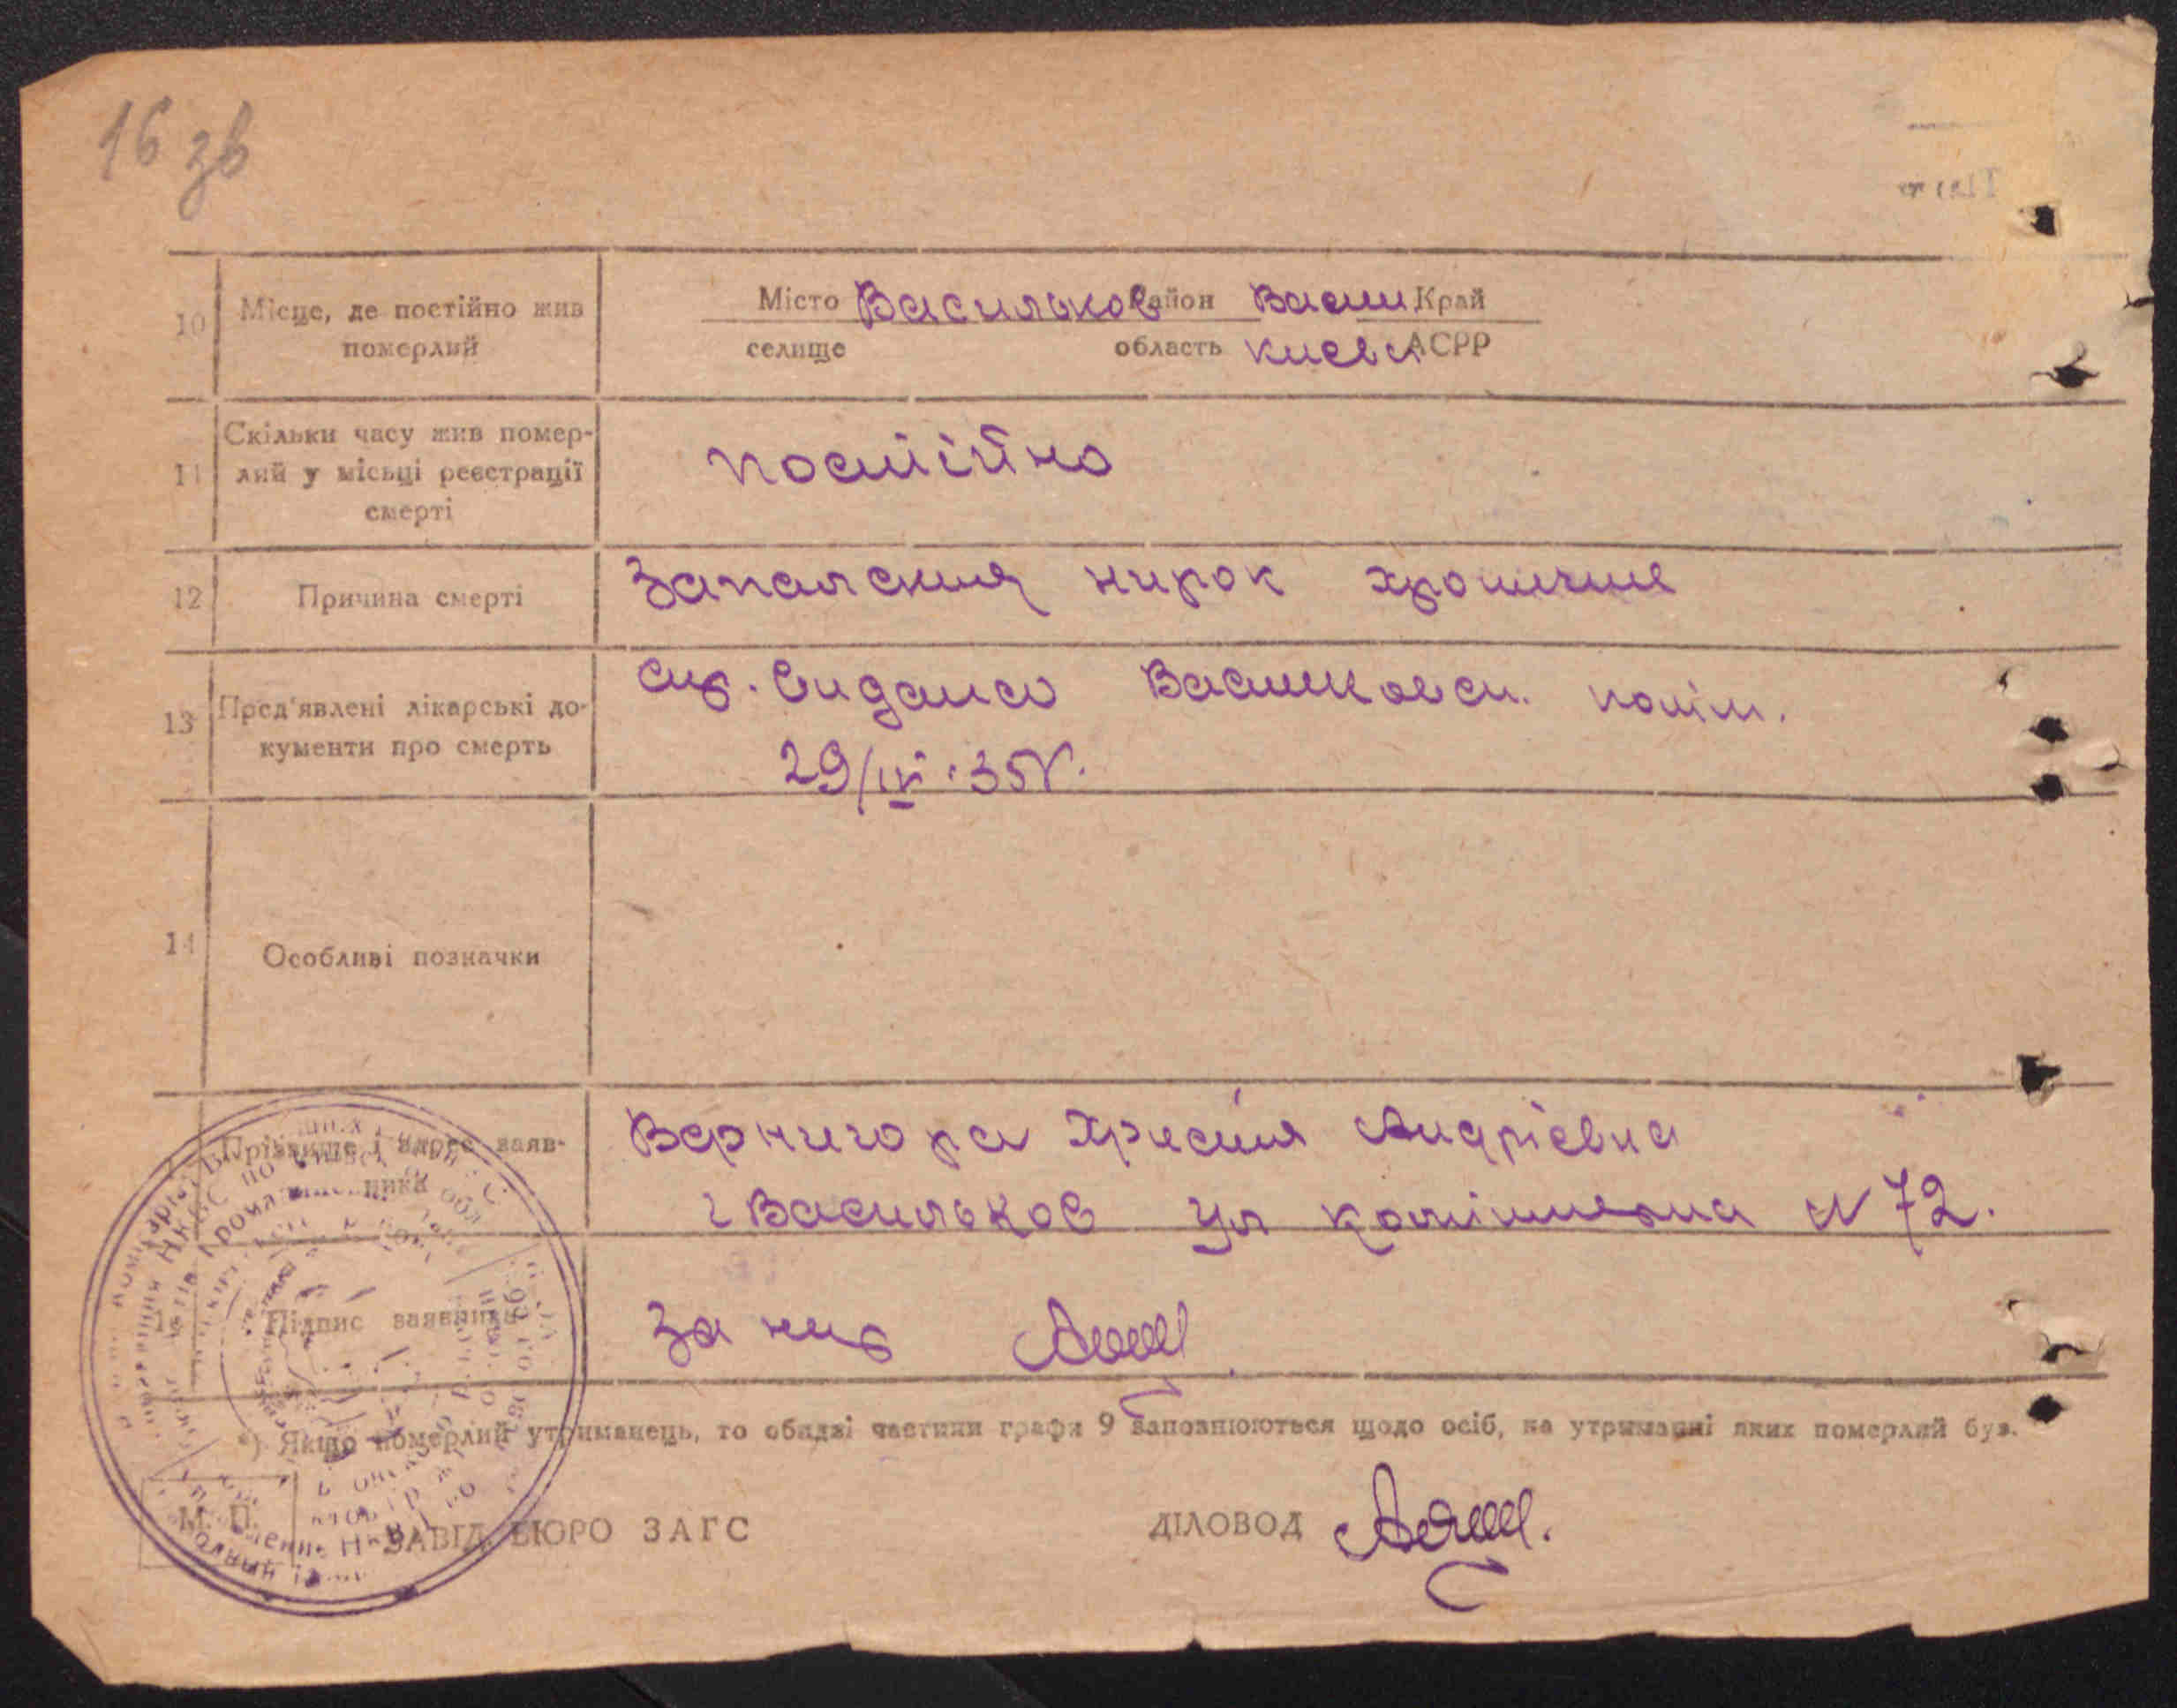 16 зв
10 Місце, де постійно жив померлий
Місто Васильков район Васильк Край
селище область Київськ АСРР
11 Скільки часу жив помер-
лий у місьці реєстрації
смерті
постійно
12 Причина смерті
Запаления нирок хроничне
13 Пред'явлені лікарські до-
кументи про смерть
спр. видана Васильковск. полік.
29/IV.35 г.
14 Особливі позначки
Прізвище і адрес заяв-
ника
Вернигора Христія Андрієвна
г Васильков ул N 72.
Підпис заявника
За неї
*) Якщо померлий утриманець, то обидві частини графи 9 заповнюються щодо осіб, на утриманні яких померлий був.
М. П.
ЗАВІД. БЮРО ЗАГС
ДІЛОВОД